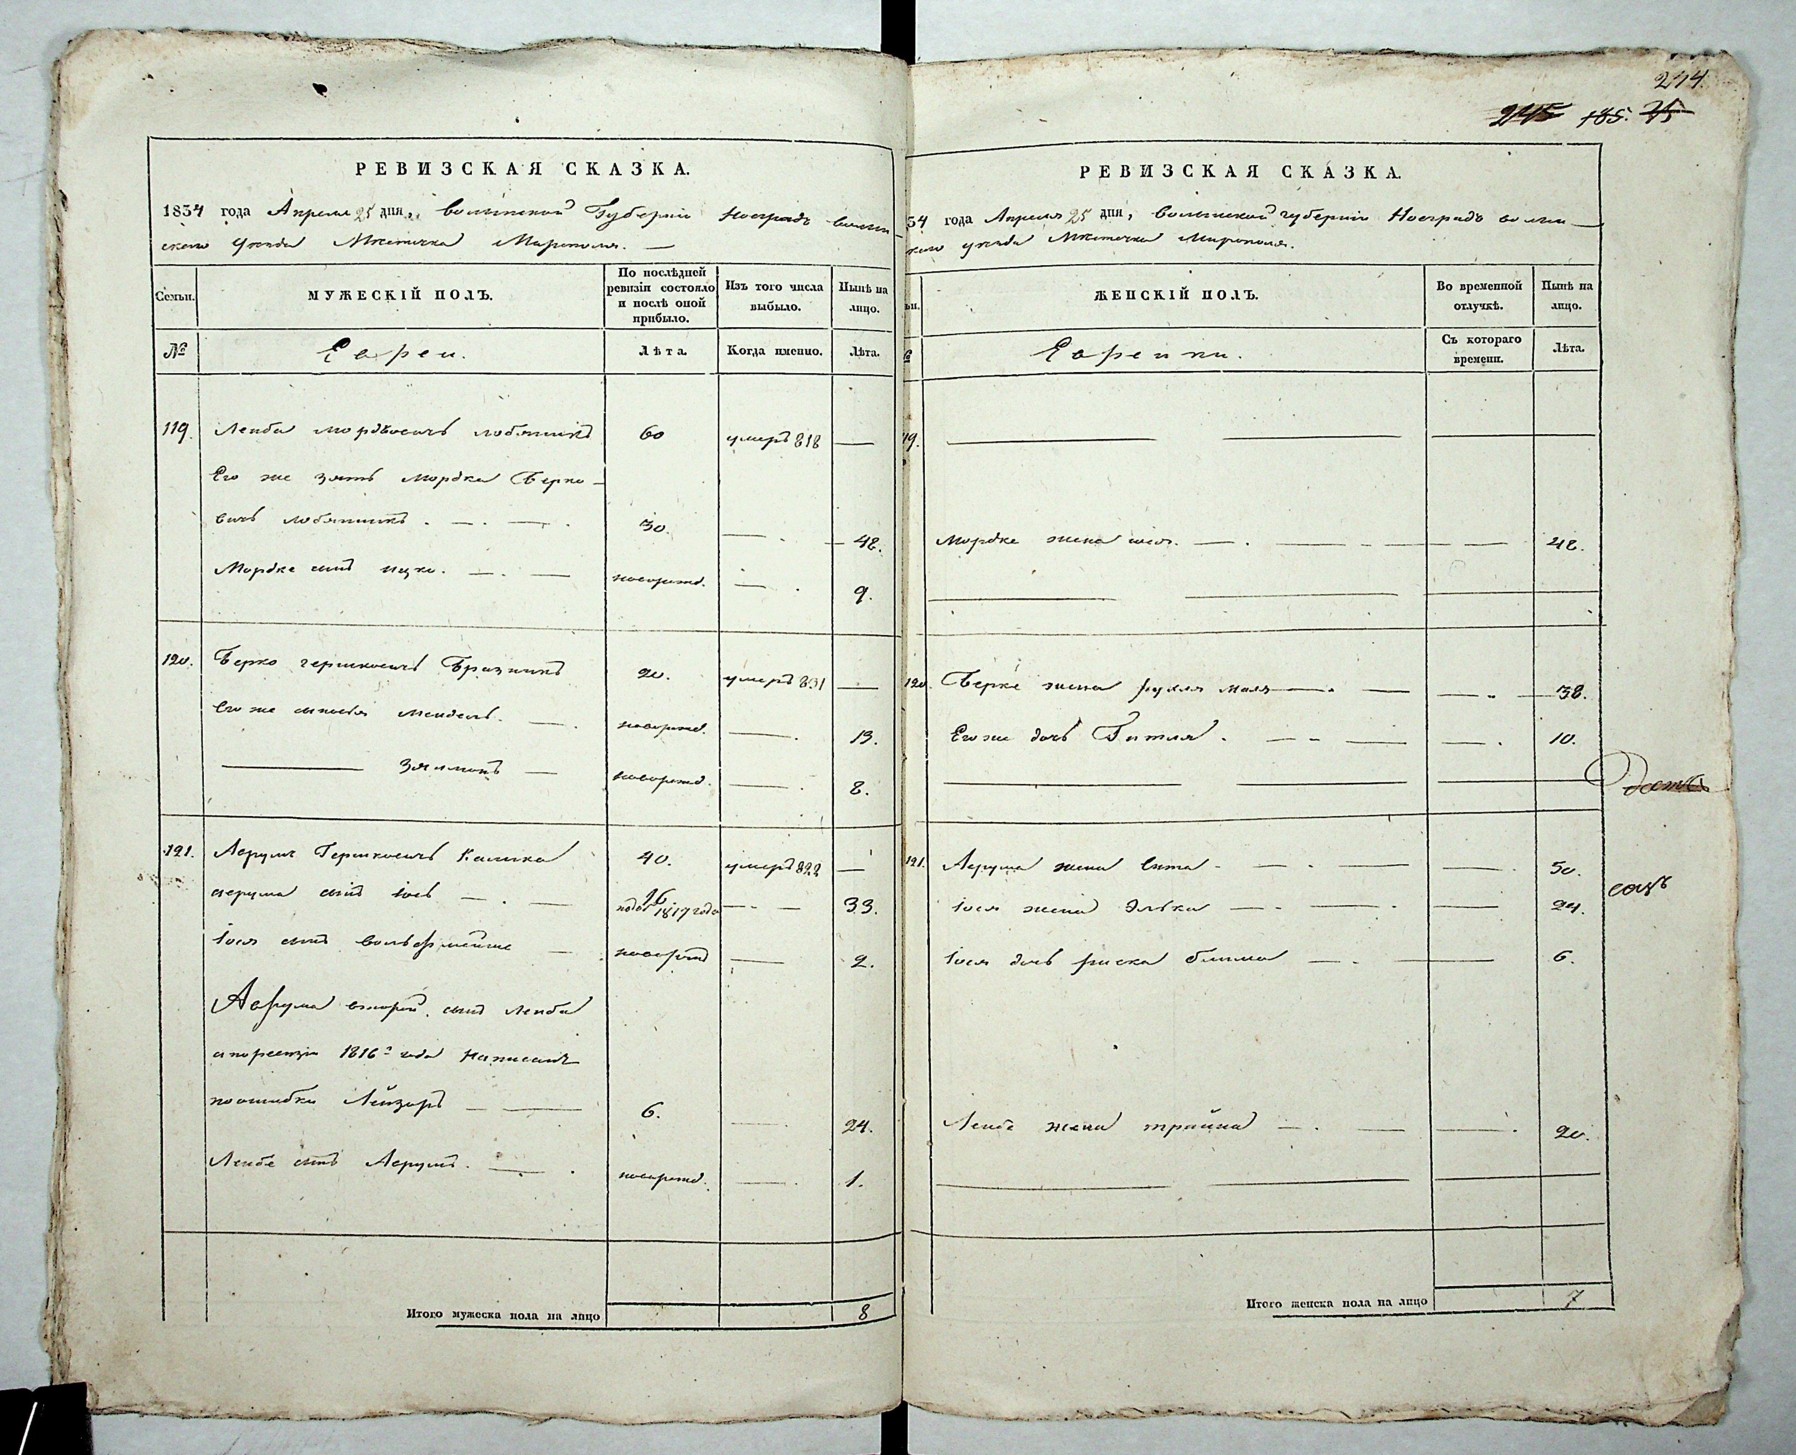 274.
245 185. 75
РЕВИЗСКАЯ СКАЗКА.
1834 года Апреля 25 дня, Волынской Губерніи Новградъ волын-
ского уезда Местечка Мирополя. —
Семьи.
МУЖЕСКІЙ ПОЛЪ.
По послѣдней ревизіи состояло и послѣ оной прибыло.
Изъ того числа выбыло.
Нынѣ на лицо.
№
Евреи.
Лѣта.
Когда именно.
Лѣта.
119. Лейба Мордковичъ 60 умеръ 818 —
Его же зять Мордка Берко-
вичъ 30. — 48.
Мордке сынъ Ицко. — новорожд. — 9.
120. Берко Гершковичъ 20. умеръ 831 —
Его же сыновья Мендель. — новорожд. — 13.
— Зелманъ — новорожд. — 8.
121. Аврумъ Гершковичъ Калика 40. умеръ 822 —
Аврума сынъ Іось — 16 1817 года — 33.
Іося сынъ — новорожд — 2.
Аврума второй сынъ Лейба
а по ревизіи 1816го года написанъ
по ошибки Лейзоръ — 6. — 24.
Лейбе сынъ Аврумъ. — новорожд. — 1.
Итого мужеска пола на лицо 8
РЕВИЗСКАЯ СКАЗКА.
34 года Апреля 25 дня, Волынской губерніи Новградъ волын-
ского уезда Местечка Мирополя.
ьи.
ЖЕНСКІЙ ПОЛЪ.
Во временной отлучкѣ.
Нынѣ на лицо.
№
Еврейки.
Съ котораго времени.
Лѣта.
19. — — —
Мордке жена — 48.
— — —
120. Берке жена Рухля Маля — 38.
Его же дочь Гитля. — 10.
— — —
121. Аврума жена — 50.
Іося жена Элька — 24.
Іося дочь Риска Блима — 6.
Лейбе жена Трайна — 20.
— — —
Итого женска пола на лицо 7